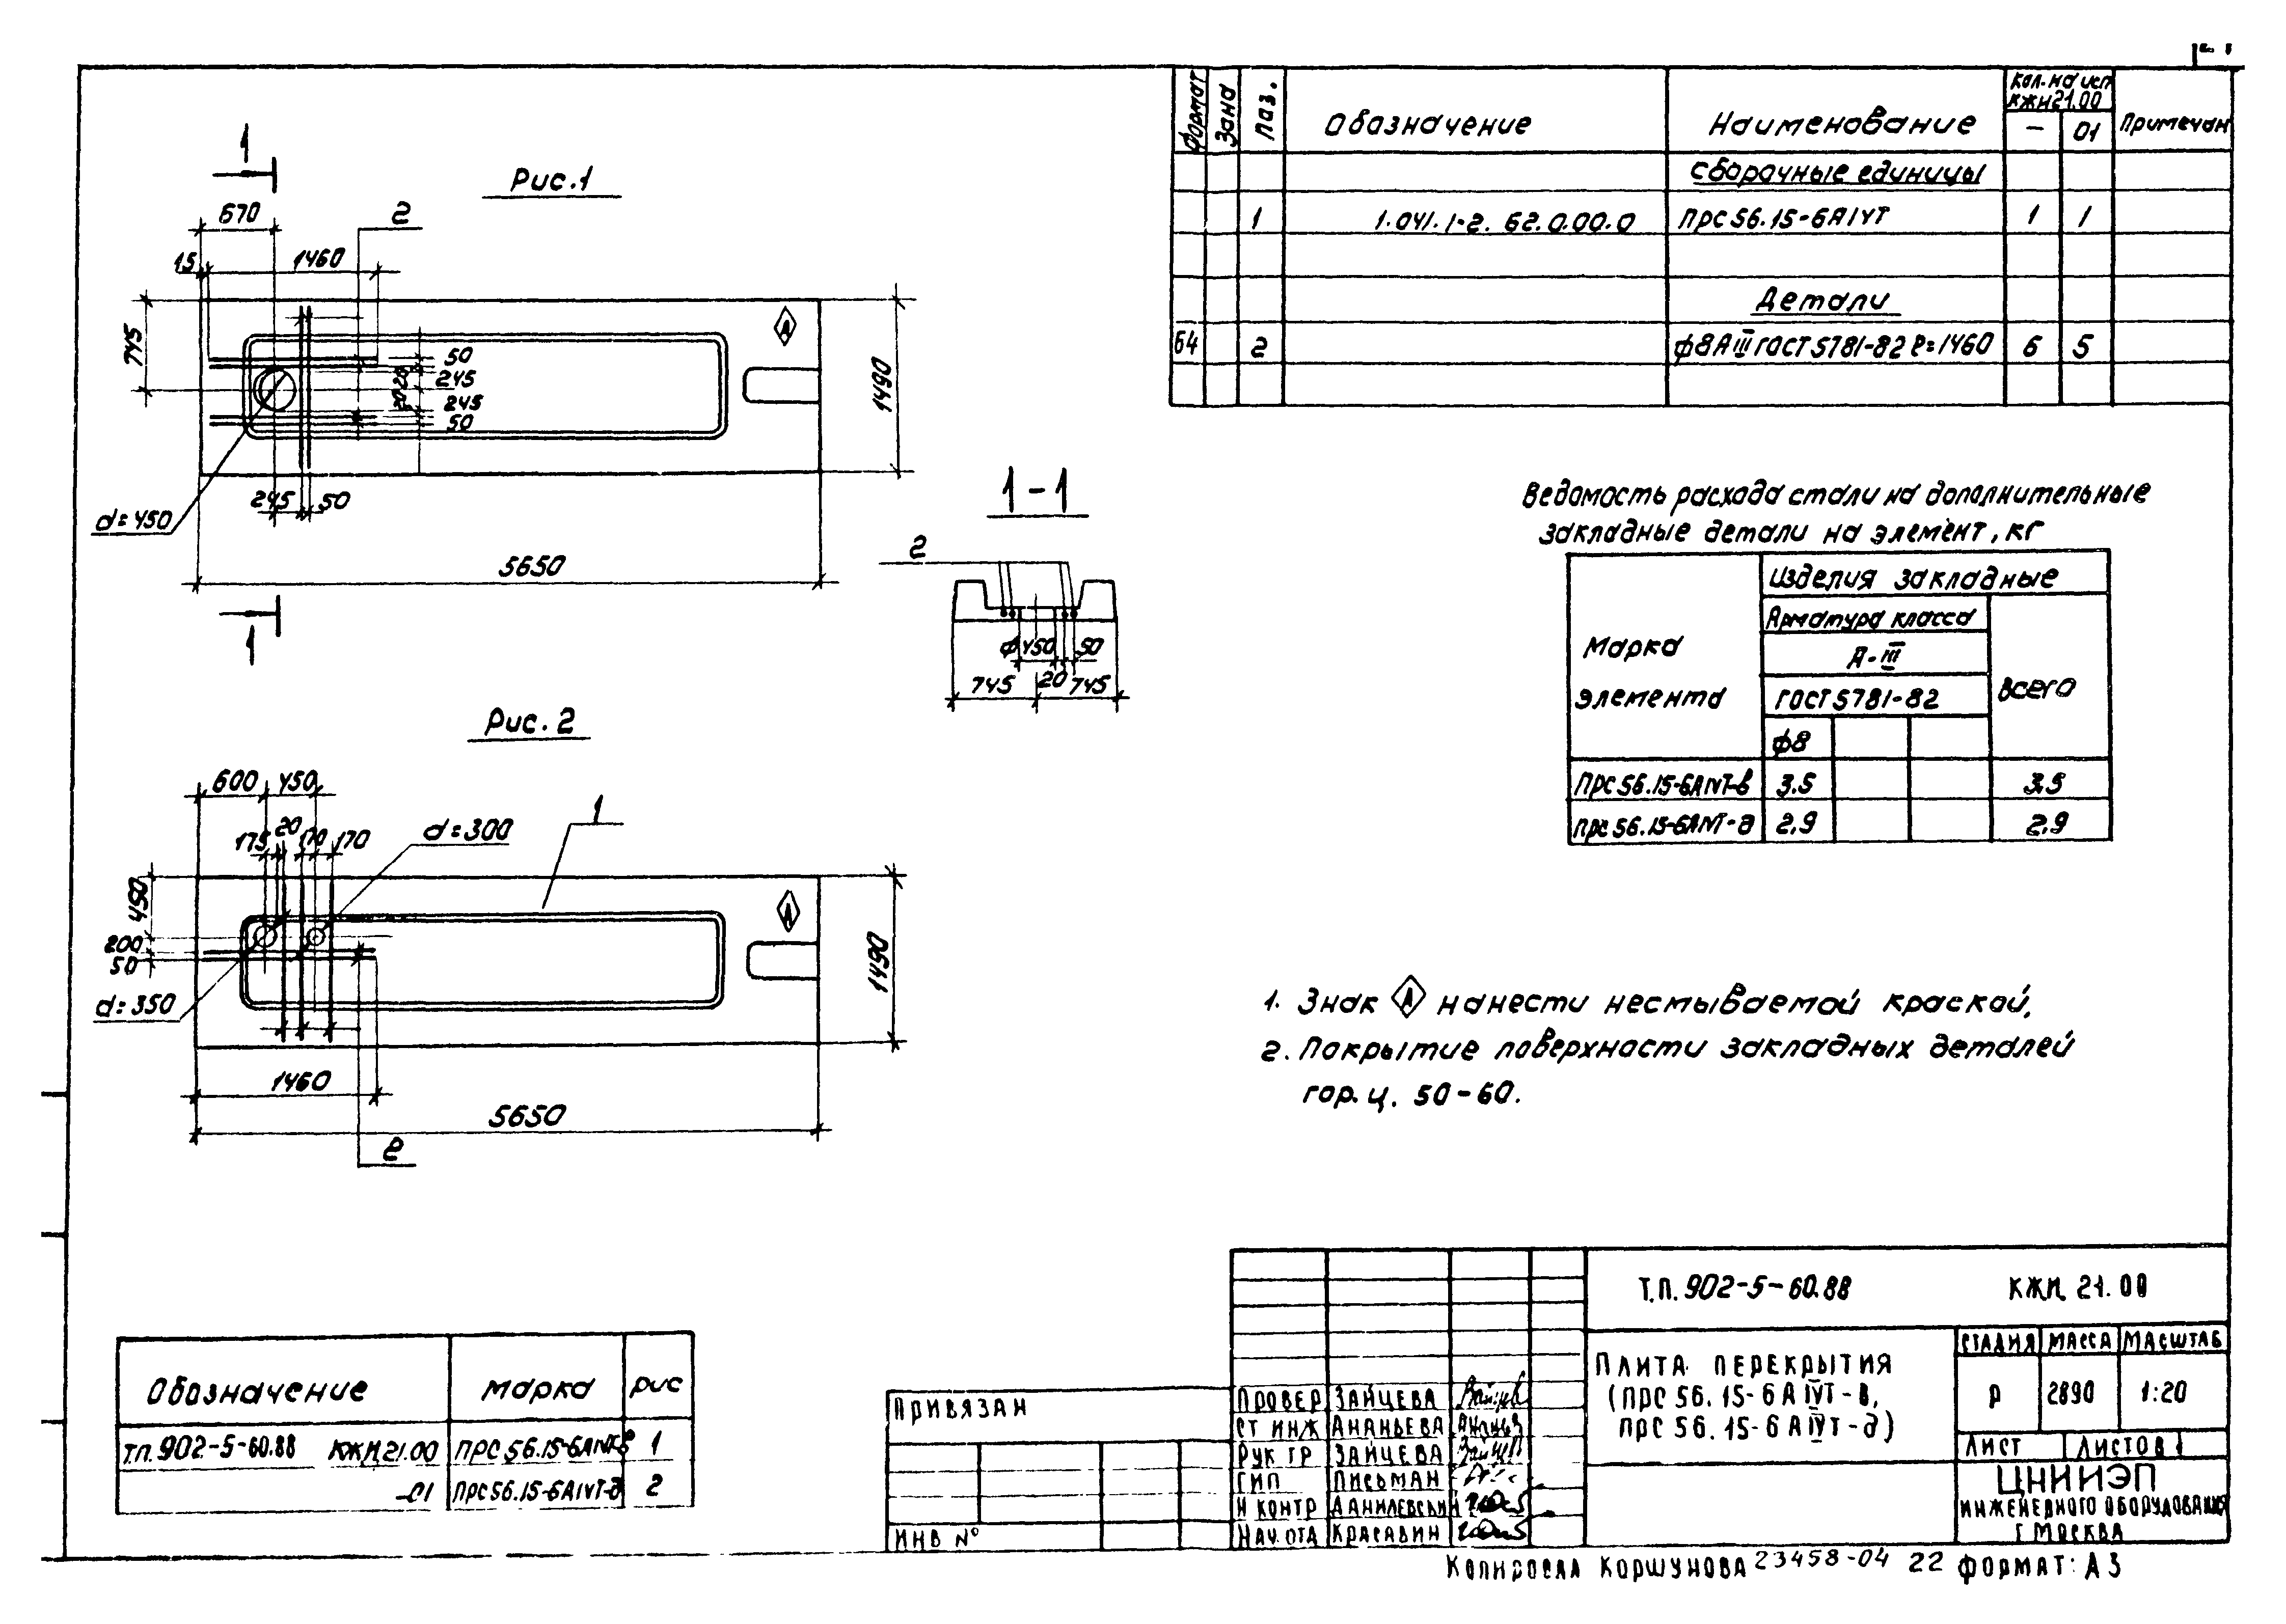 Рис.1
1
670
2
15
1460
745
50
245
20 20
245
50
1490
245
50
d=450
5650
1
1-1
2
ф450
50
745
20
745
Рис. 2
600
450
1
175
20
170
170
d=300
450
200
50
1490
d=350
1460
5650
2
Формат
Зона
Поз.
Обозначение
Наименование
Кол. на исп
КЖИ21.00
-
01
Примечан
Сборочные единицы
1 1.041.1-2. 62.0.00.0 ПРС56.15-6АIVТ 1 1
Детали
Б4 2 ф8АIII ГОСТ 5781-82 ℓ=1460 6 5
Ведомость расхода стали на дополнительные
закладные детали на элемент, кг
Марка
элемента
Изделия закладные
Арматура класса
А-III
ГОСТ 5781-82
ф8
Всего
ПРС56.15-6АIVТ-в 3.5 3.5
ПРС56.15-6АIVТ-д 2.9 2.9
1. Знак А нанести несмываемой краской,
2. Покрытие поверхности закладных деталей
гор. ц. 50-60.
Обозначение Марка Рис
Т.П. 902-5-60.88 КЖИ.21.00 ПРС56.15-6АIVТ-в 1
-01 ПРС56.15-6АIVТ-д 2
Привязан
Инв №
Провер Зайцева
Ст инж Ананьева
Рук гр Зайцева
ГИП Письман
Н контр Данилевский
Нач. отд Красавин
Т.П. 902-5-60.88 КЖИ 21.00
Плита перекрытия
(ПРС 56.15-6 АIVТ-в,
ПРС 56.15-6 АIVТ-д)
Стадия Масса Масштаб
Р 2890 1:20
Лист Листов 1
ЦНИИЭП
инженерного оборудования
г. Москва
Копировал Коршунова 23458-04 22 Формат: А3